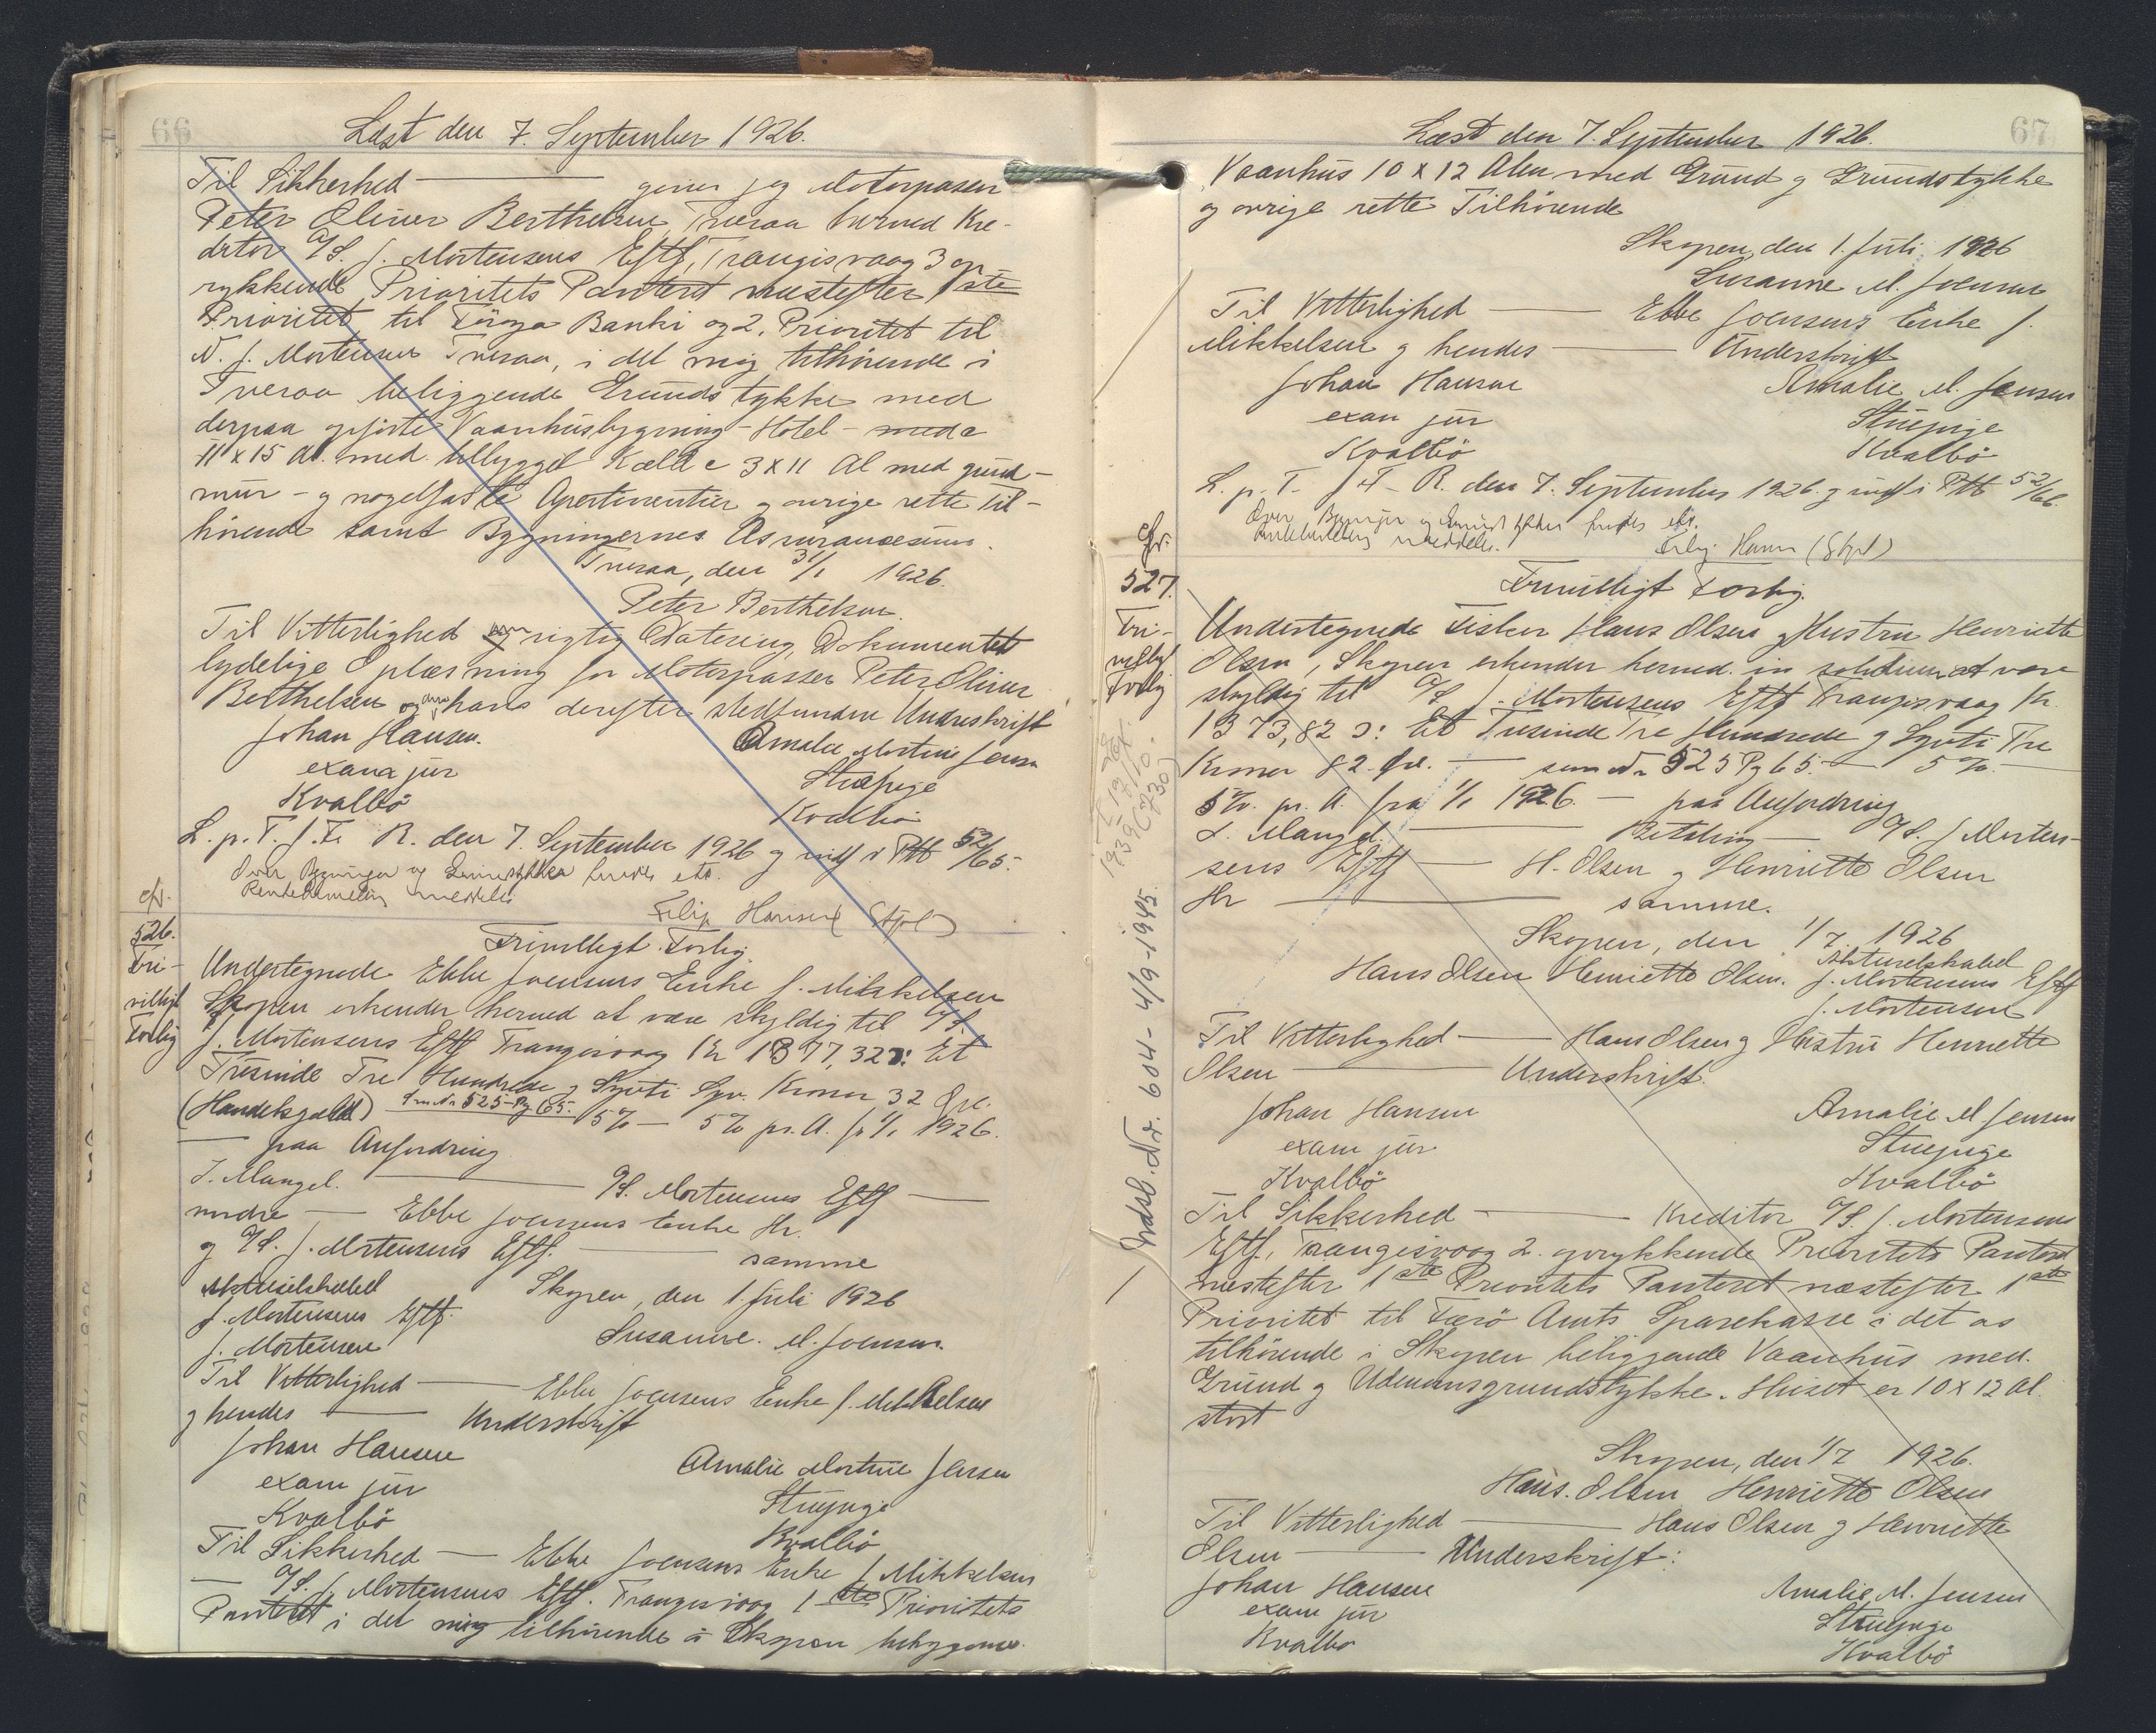 66
Læst den 7. September 1926.
Til Sikkerhed — giver jeg Motorpasser
Peter Oliver Berthelsen, Tveraa herved Kre-
ditor A/S. J. Mortensens Eftf, Trangisvaag 3 op-
rykkende Prioritets Panteret næstefter 1ste
Prioritet til Føroya Banki og 2. Prioritet til
N. J. Mortensen Tveraa, i det mig tilhørende i
Tveraa beliggende Grundstykke med
derpaa opførte Vaanhusbygning - Hotel - med c
11 x 15 Al. med tilbygget Kæld c 3 x 11 Al med grund-
mur - og nagelfaste Apertinentier og øvrige rette Til-
hørende samt Bygningernes Assurancesum.
Tveraa, den 31/1 1926.
Peter Berthelsen.
Til Vitterlighed om rigtig Datering, Dokumentet
lydelige Oplæsning for Motorpasser Peter Oliver
Berthelsen og om hans derefter stedfundne Underskrift
Johan Hansen. Amalie Mortine Jensen
exam jur Stuepige
Kvalbø Kvalbø
L. p. T. f. F. R. den 7. September 1926 og indf i Ptb 52/65.
Over Bygninger og Grundstykker findes etc.
Rentebemelding meddeles.
Filip Hansen (Stpl)
cfr.
526.
Fri-
villigt
Forlig
Frivilligt Forlig.
Undertegnede Ebbe Joensens Enke f. Mikkelsen
Skopen erkender herved at være skyldig til A/S.
J. Mortensens Eftf Trangisvaag Kr 1377,32 ɔ: Et
Tusinde Tre Hundrede og Syvti Syv Kroner 32 Øre.
(Handelsgæld) som Nr 525 - Pg 65. 5% — 5% pr. A. fr 1/1 1926.
— paa Anfordring
I. Mangel. — A/S. Mortensens Eftf —
mndre — Ebbe Joensens Enke Hr.
og A/S. J. Mortensens Eftf. — samme
Aktieselskabet Skopen, den 1. Juli 1926
J. Mortensens Eftf.
J. Mortensen Susanne. M. Joensen.
Til Vitterlighed — Ebbe Joensens Enke f. Mikkelsen
og hendes — Underskrift
Johan Hansen Amalie Mortine Jensen
exam jur Stuepige
Kvalbø Kvalbø
Til Sikkerhed — Ebbe Joensens Enke f Mikkelsen
— A/S. J. Mortensens Eftf. Trangisvaag 1ste Prioritets
Panteret i det mig tilhørende i Skopen beliggende
67
Læst den 7. September 1926.
Vaanhus 10 x 12 Alen med Grund og Grundstykke
og øvrige rette Tilhørende
Skopen, den 1. Juli 1926
Susanne M. Joensen
Til Vitterlighed — Ebbe Joensens Enke f.
Mikkelsen og hendes — Underskrift
Johan Hansen Amalie M. Jensen
exam jur Stuepige
Kvalbø Kvalbø
L. p. T. f F. R. den 7. September 1926. og indf i Ptb 52/66.
Over Bygninger og Grundstykker findes etc.
Rentebemelding meddeles.
Filip Hansen (Stpl)
cfr.
527.
Fri-
villigt
Forlig
Frivilligt Forlig.
Undertegnede Fisker Hans Olsen og Hustru Henriette
Olsen, Skopen erkender herved in solidum at være
skyldig til A/S J. Mortensens Eftf Trangisvaag Kr.
1373,82 ɔ: Et Tusinde Tre Hundrede og Syvti Tre
Kroner 82 Øre. — som Nr 525 Pg 65. — 5%. —
5%. pr. A. fra 1/1 1926. — paa Anfordring
I. Mangel. — Betaling — A/S. J Morten-
sens Eftf — H. Olsen og Henriette Olsen
Hr — samme.
Skopen, den 1/7 1926
Aktieselskabet
Hans Olsen Henriette Olsen. J. Mortensens Eftf
J. Mortensen
Til Vitterlighed — Hans Olsen og Hustru Henriette
Olsen — Underskrift.
Johan Hansen Amalie M Jensen
exam jur Stuepige
Kvalbø Kvalbø
Til Sikkerhed — Kreditor A/S. J. Mortensens
Eftf, Trangisvaag 2. oprykkende Prioritets Panteret
næstefter 1ste Prioritets Panteret næstefter 1ste
Prioritet til Færø Amts Sparekasse i det os
tilhørende i Skopen beliggende Vaanhus med.
Grund og Udmarksgrundstykke. Huset er 10 x 12 Al.
stort
Skopen, den 1/7 1926.
Hans. Olsen Henriette Olsen
Til Vitterlighed — Hans Olsen og Henriette
Olsen — Underskrift:
Johan Hansen Amalie M. Jensen
exam jur Stuepige
Kvalbø Kvalbø
— Indsb. Nr. 604 - 4/9-1945.
1939 (730)